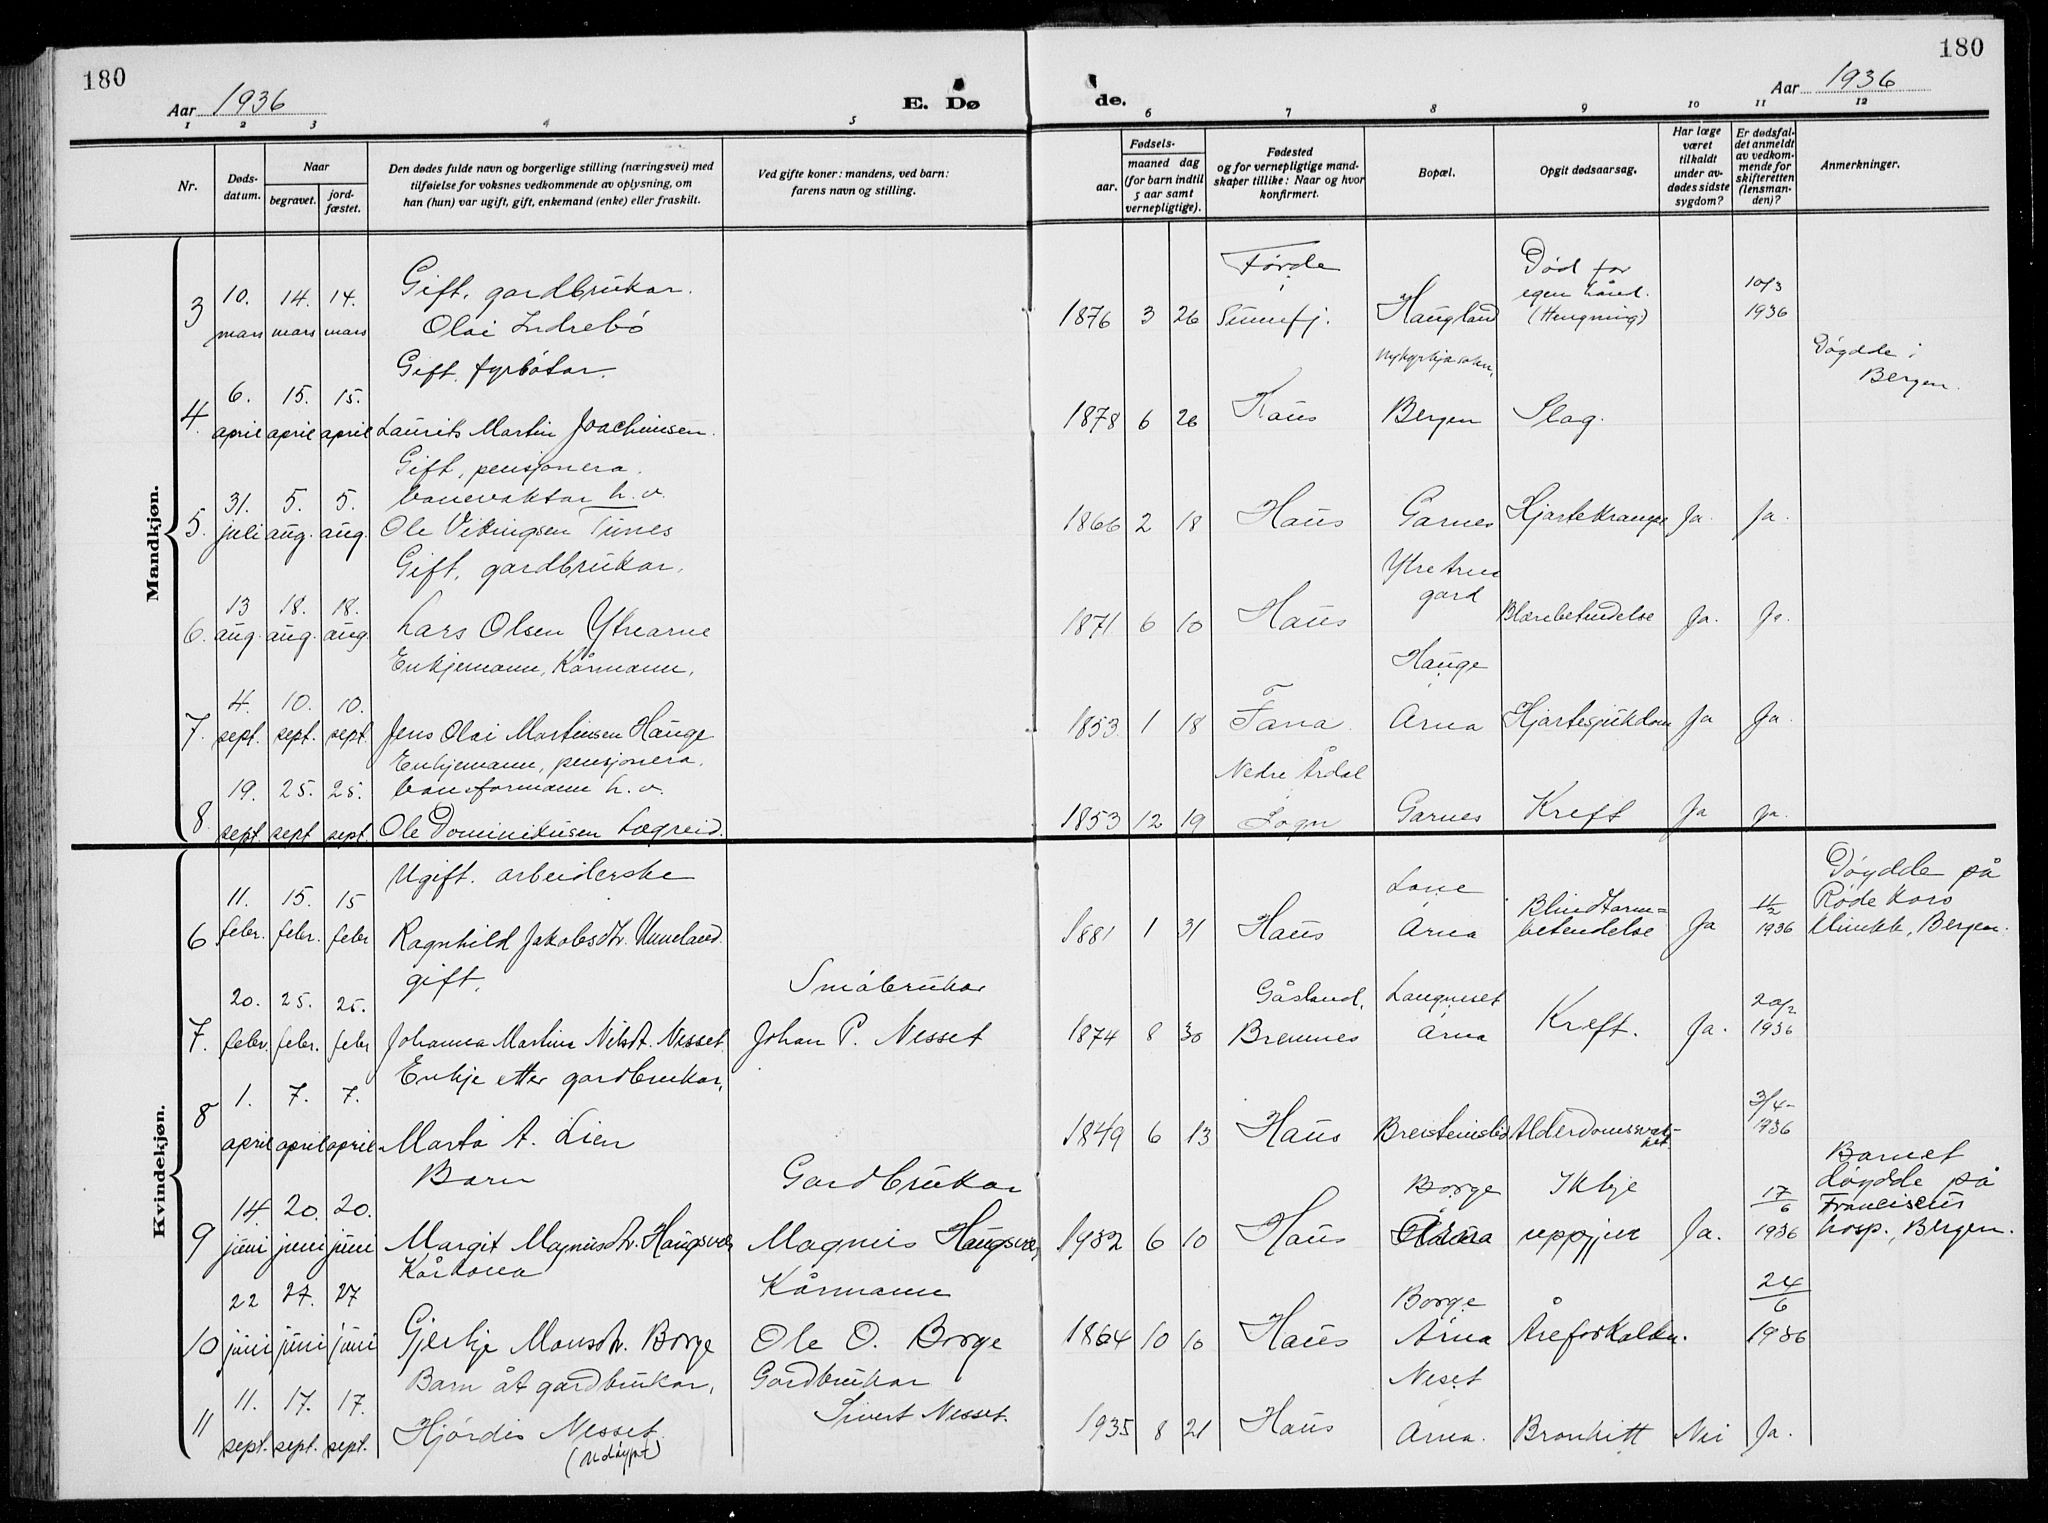 180
180
Aar 1936
E. Dø
de.
Aar 1936
1 2 3 4 5
6 7 8 9 10 11 12
Nr.
Døds-
datum.
Naar
begravet.
jord-
fæstet.
Den dødes fulde navn og borgerlige stilling (næringsvei) med
tilføielse for voksnes vedkommende av oplysning, om
han (hun) var ugift, gift, enkemand (enke) eller fraskilt.
Ved gifte koner: mandens, ved barn:
farens navn og stilling.
Fødsels-
aar.
maaned dag
(for barn indtil
5 aar samt
vernepligtige).
Fødested
og for vernepligtige mand-
skaper tillike: Naar og hvor
konfirmert.
Bopæl.
Opgit dødsaarsag.
Har læge
været
tilkaldt
under av-
dødes sidste
sygdom?
Er dødsfal-
det anmeldt
av vedkom-
mende for
skifteretten
(lensman-
den)?
Anmerkninger.
Mandkjøn.
3 10. mars 14. mars 14. mars
Gift, gardbrukar.
Olai Indrebö
1876 3 26
Førde
Sunnfj.
Haugland
Nykyrkjesokn.
Død for
egen hånd.
(Hengning)
10/3
1936
4. 6. april 15. april 15. april
Gift. fyrbötar.
Laurits Martin Joachimsen.
1878 6 26 Haus Bergen Slag.
Döydde i
Bergen.
5. 31. juli 5. aug. 5. aug.
Gift, pensjonera.
banevaktar h. v.
Ole Vikingsen Tunes
1866 2 18 Haus Garnes Hjartekrampe Ja. Ja.
6. 13 aug. 18. aug. 18. aug.
Gift, gardbrukar.
Lars Olsen Ytrearne
1871 6 10 Haus
Ytre Arna
gard
Blærebetendelse Ja. Ja.
7. 4. sept. 10. sept. 10. sept.
Enkjemann, Kårmann.
Jens Olai Martinsen Hauge
1853 1 18 Fana
Hauge
Arna
Hjartesjukdom Ja Ja.
8 19. sept. 25. sept 25. sept.
Enkjemann, pensjonera.
baneformann h. v.
Ole Dominikusen Lægreid.
1853 12 19
Nedre Årdal
Sogn
Garnes Kreft Ja Ja.
Kvindekjøn.
6 11. febr. 15. febr. 15 febr
Ugift. arbeiderske
Ragnhild Jakobsdtr. Unneland.
1881 1 31 Haus
Lone
Arna
Blindtarm=
betendelse
Ja
11/2
1936
Döydde på
Røde Kors
klinikk, Bergen.
7. 20. febr. 25. febr. 25. febr
gift.
Johanna Martine Nilsdt. Nesset.
Småbrukar
Johan P. Nesset
1874 8 30
Gåsland,
Bremnes
Langneset
Arna
Kreft. Ja.
20/2
1936
8 1. april 7. april 7. april
Enkje etter gardbrukar.
Marta A. Lien
1849 6 13 Haus Breisteinslid Alderdomssvak-
het.
3/4-
1936
9 14. juni 20. juni 20. juni
Barn
Margit Magnusdtr. Haugsvær
Gardbrukar
Magnus Haugsvær
1932 6 10 Haus
Borge
Arna
Ikkje
uppgjeve
Ja.
17/6
1936
Barnet
döydde på
Franciscus
hosp., Bergen.
10 22 juni 27. juni 27 juni
Kårkona
Gjertje Monsdtr. Borge
Kårmann
Ole O. Borge
1864 10 10 Haus
Borge
Arna
Åreforkalkn.
24/6
1936
11 11. sept. 17. sept. 17. sept.
Barn åt gardbrukar.
Hjördis Nesset.
(Udöypt)
Gardbrukar
Sivert Nesset.
1935 8 21 Haus
Neset
Arna.
Bronkitt Nei Ja.